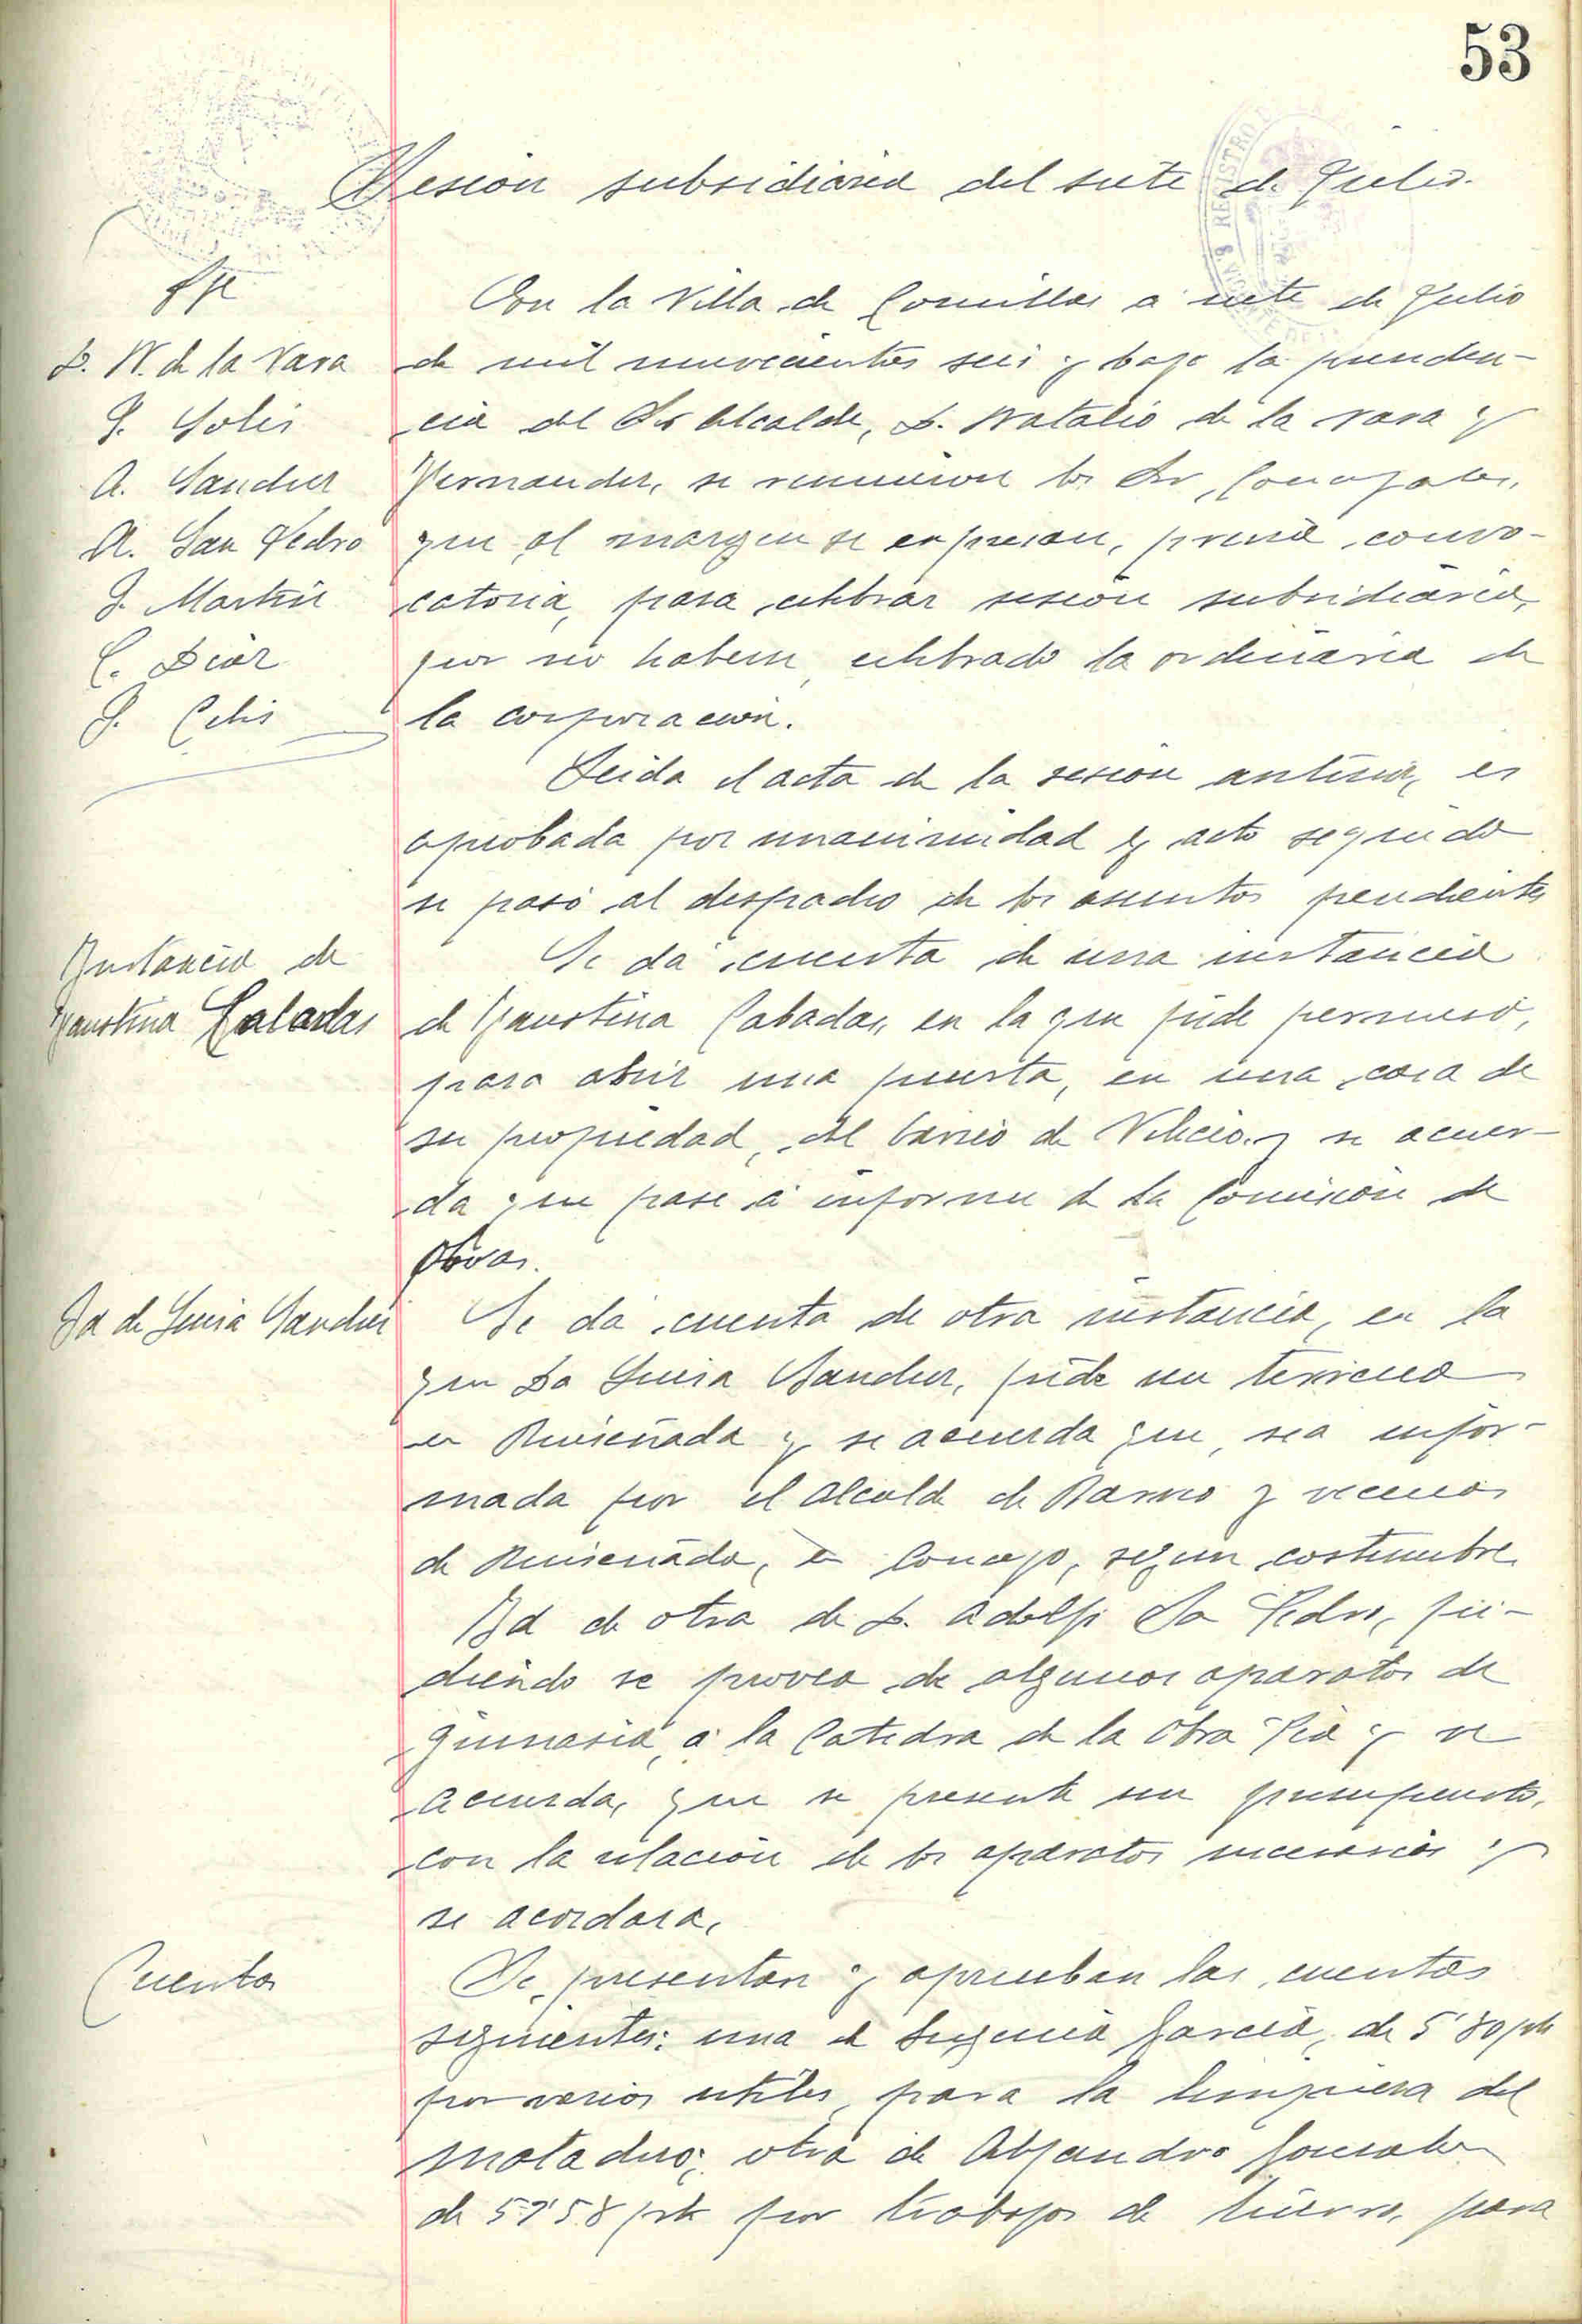 53
Sesion subsidiaria del siete de Julio.
D. N. de la Vara
J. Solis
A. Sanchez
A. San Pedro
J. Martin
C. Diaz
J. Celis
En la Villa de Comillas a siete de Julio
de mil novecientos seis y bajo la presiden-
cia del Sr Alcalde, D. Natalio de la Vara y
Fernandez, se reunieron los Srs, Concejales,
que al margen se expresan, previa convo-
catoria, para celebrar sesion subsidiaria,
por no haberse celebrado la ordinaria de
la corporacion.
Leida el acta de la sesion anterior, es
aprobada por unanimidad y acto seguido
se pasó al despacho de los asuntos pendientes
Instancia de
Faustina Cabadas
Se dá cuenta de una instancia
de Faustina Cabadas, en la que pide permiso,
para abrir una puerta, en una casa de
su propiedad, del barrio de Velecio y se acuer-
da que pase á informe de la Comision de
Obras.
Id de Luisa Sanchez
Se dá cuenta de otra instancia, en la
que Da Luisa Sanchez, pide un terreno
en Ruiseñada y se acuerda que, sea infor-
mada por el Alcalde de Barrio y vecinos
de Ruiseñada, en Concejo, segun costumbre.
Id de otra de D. Adolfo Sn Pedro, pi-
diendo se provea de algunos aparatos de
Gimnasia, a la Catedra de la Obra Pia y se
acuerda, que se presente un presupuesto,
con la relación de los aparatos necesarios y
se acordara.
Cuentas
Se presentan y aprueban las cuentas
siguientes: una de Eugenia Garcia, de 5'80 pts
por varios utiles, para la limpieza del
matadero; otra de Alejandro Gonzalez
de 59'58 pts por trabajos de hierro, para